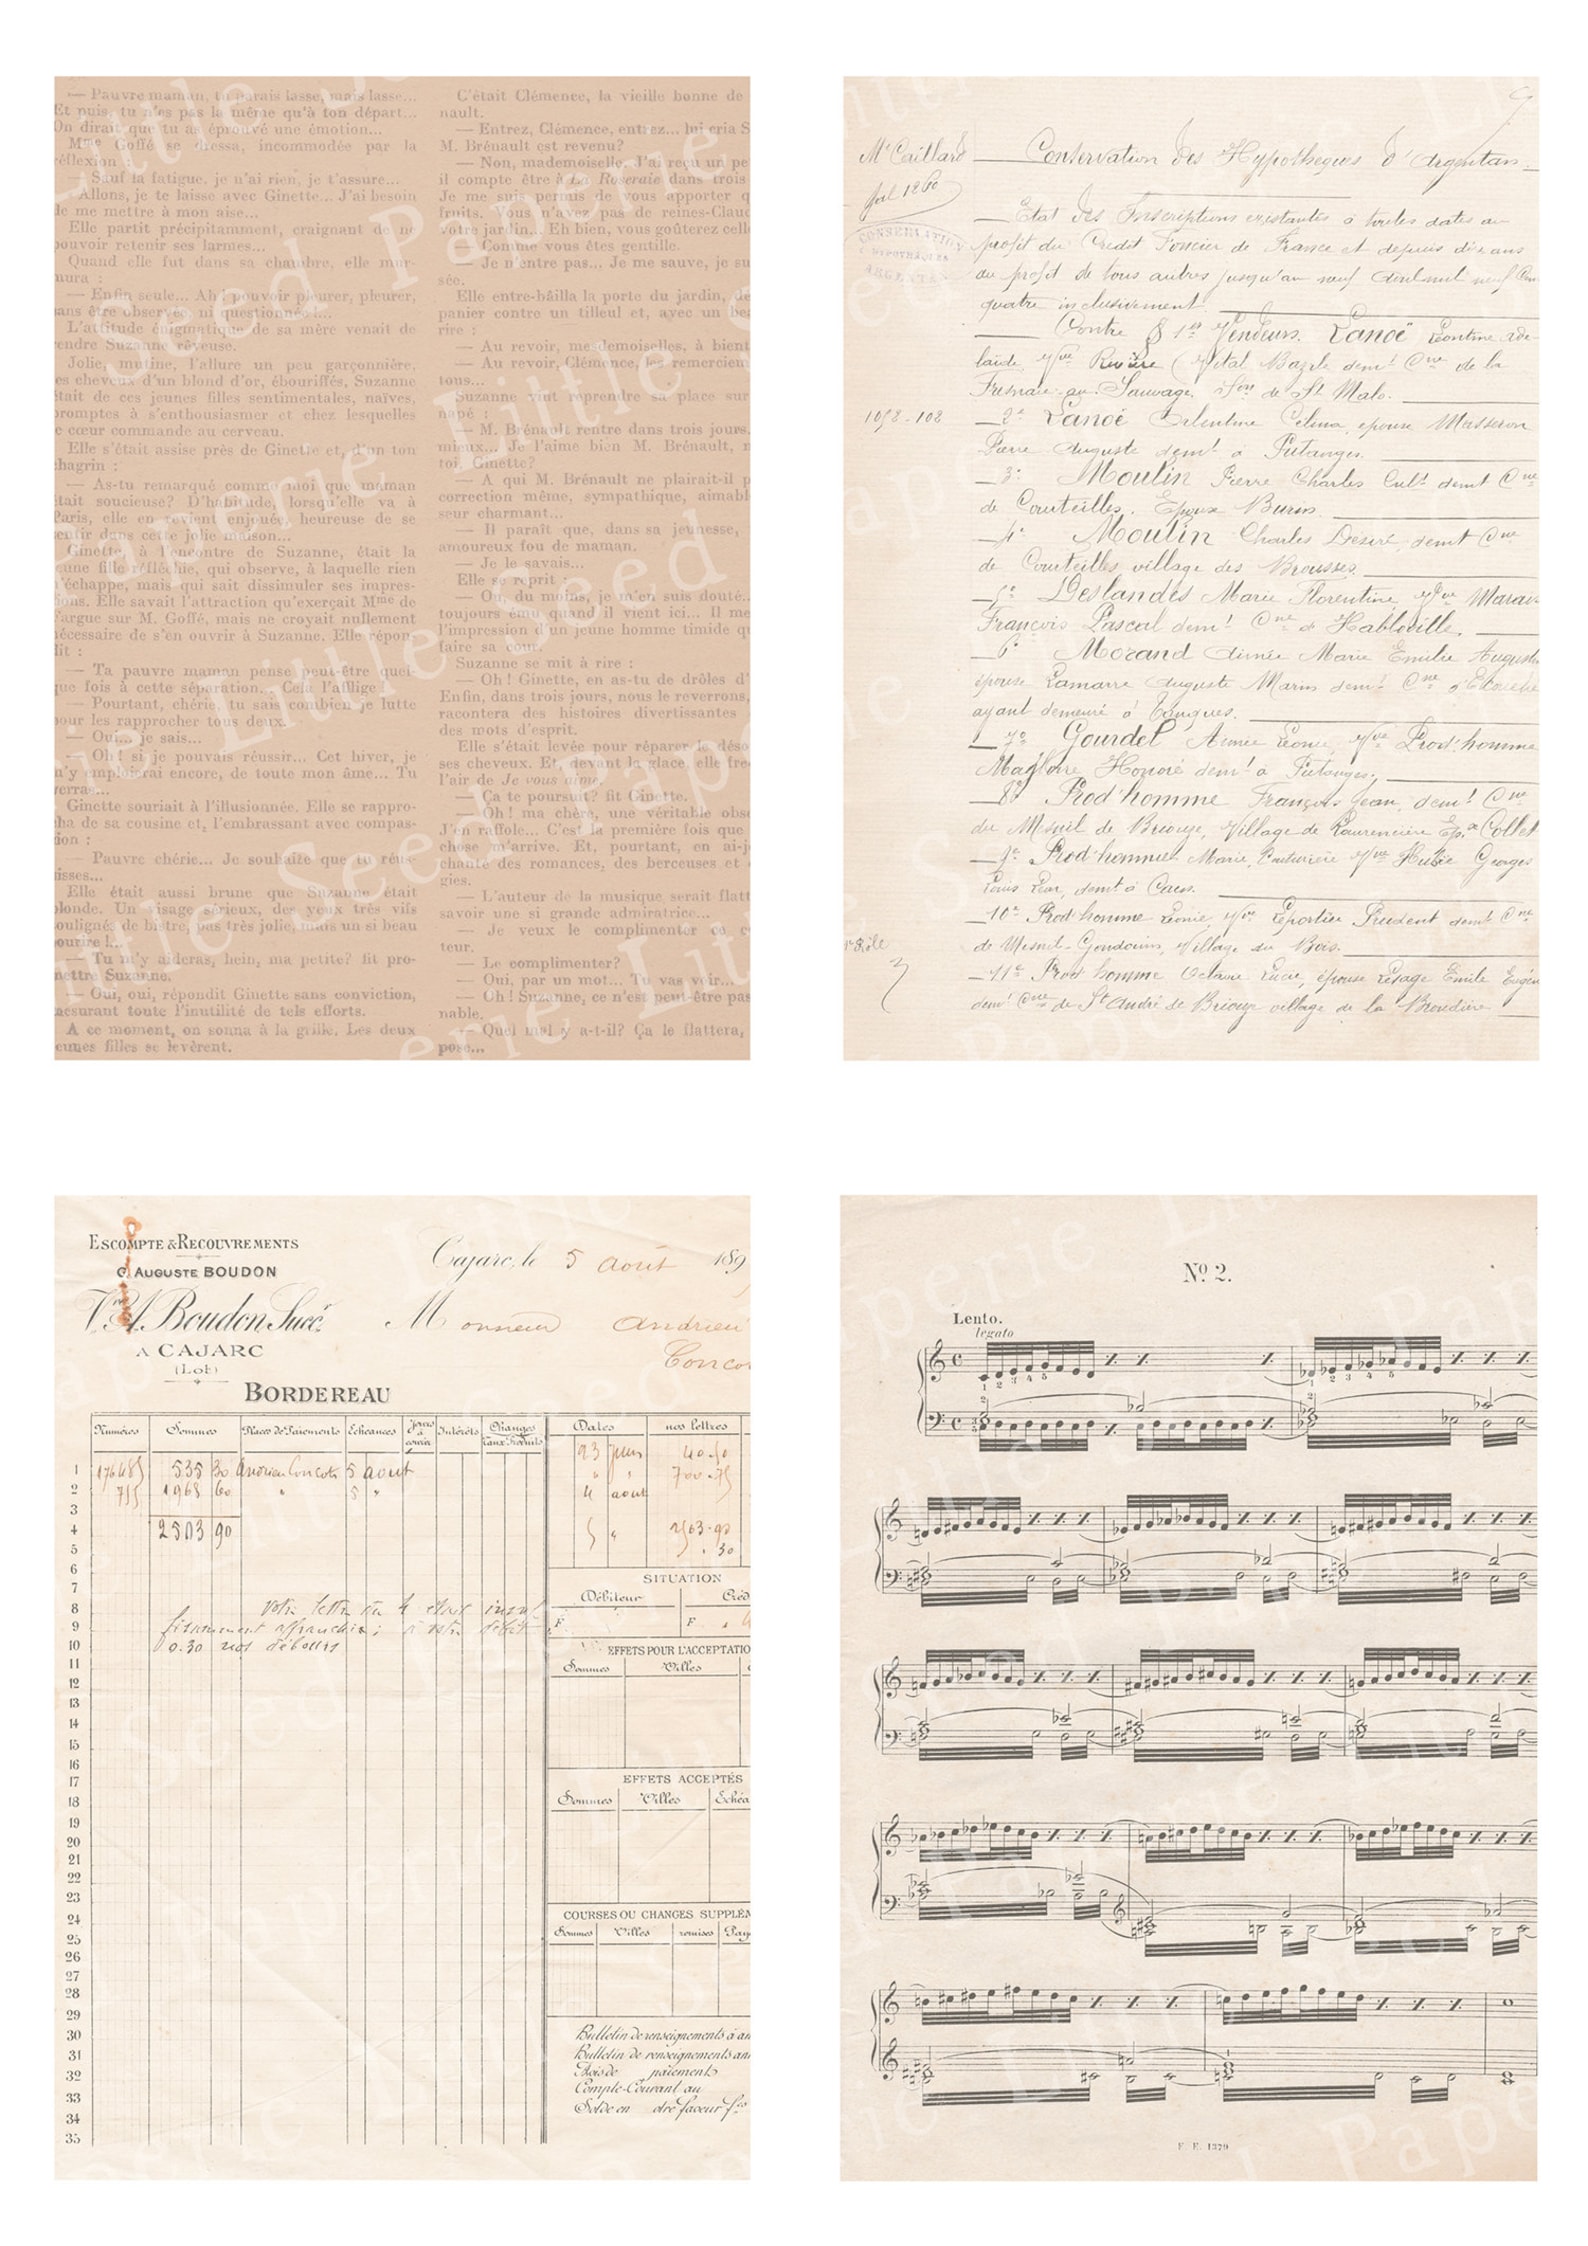 — Pauvre maman, tu parais lasse, mais lasse...
Et puis, tu n'es pas la même qu'à ton départ...
On dirait que tu as éprouvé une émotion...
Mme Goffé se dressa, incommodée par la
réflexion :
— Sauf la fatigue, je n'ai rien, je t'assure...
Allons, je te laisse avec Ginette... J'ai besoin
de me mettre à mon aise...
Elle partit précipitamment, craignant de ne
pouvoir retenir ses larmes...
Quand elle fut dans sa chambre, elle mur-
mura :
— Enfin seule... Ah ! pouvoir pleurer, pleurer,
sans être observée ni questionnée !...
L'attitude énigmatique de sa mère venait de
rendre Suzanne rêveuse.
Jolie, mutine, l'allure un peu garçonnière,
es cheveux d'un blond d'or, ébouriffés, Suzanne
était de ces jeunes filles sentimentales, naïves,
promptes à s'enthousiasmer et chez lesquelles
e cœur commande au cerveau.
Elle s'était assise près de Ginette et, d'un ton
chagrin :
— As-tu remarqué comme moi que maman
était soucieuse? D'habitude, lorsqu'elle va à
Paris, elle en revient enjouée, heureuse de se
sentir dans cette jolie maison...
Ginette, à l'encontre de Suzanne, était la
eune fille réfléchie, qui observe, à laquelle rien
n'échappe, mais qui sait dissimuler ses impres-
sions. Elle savait l'attraction qu'exerçait Mme de
Fargue sur M. Goffé, mais ne croyait nullement
nécessaire de s'en ouvrir à Suzanne. Elle répon-
dit :
— Ta pauvre maman pense peut-être quel-
que fois à cette séparation... Cela l'afflige !
— Pourtant, chérie, tu sais combien je lutte
pour les rapprocher tous deux.
— Oui... je sais...
— Oh ! si je pouvais réussir... Cet hiver, je
m'y emploierai encore, de toute mon âme... Tu
verras...
Ginette souriait à l'illusionnée. Elle se rappro-
cha de sa cousine et, l'embrassant avec compas-
sion :
— Pauvre chérie... Je souhaite que tu réus-
sisses...
Elle était aussi brune que Suzanne était
blonde. Un visage sérieux, des yeux très vifs
soulignés de bistre, pas très jolie, mais un si beau
sourire !...
— Tu m'y aideras, hein, ma petite? fit pro-
mettre Suzanne.
— Oui, oui, répondit Ginette sans conviction,
assurant toute l'inutilité de tels efforts.
A ce moment, on sonna à la grille. Les deux
eunes filles se levèrent.
C'était Clémence, la vieille bonne de
nault.
— Entrez, Clémence, entrez... lui cria S
M. Brénault est revenu?
— Non, mademoiselle. J'ai reçu un pe
il compte être à La Roseraie dans trois
Je me suis permis de vous apporter q
fruits. Vous n'avez pas de reines-Claud
votre jardin... Eh bien, vous goûterez celle
— Comme vous êtes gentille.
— Je n'entre pas... Je me sauve, je su
sée.
Elle entre-bâilla la porte du jardin, de
panier contre un tilleul et, avec un bea
rire :
— Au revoir, mesdemoiselles, à bient
— Au revoir, Clémence, les remercien
tous...
Suzanne vint reprendre sa place sur
napé :
— M. Brénault rentre dans trois jours.
mieux... Je l'aime bien M. Brénault,
toi, Ginette?
— A qui M. Brénault ne plairait-il p
correction même, sympathique, aimabl
seur charmant...
— Il paraît que, dans sa jeunesse,
amoureux fou de maman.
— Je le savais...
Elle se reprit :
— Ou, du moins, je m'en suis douté..
toujours ému quand il vient ici... Il me
l'impression d'un jeune homme timide qu
faire sa cour.
Suzanne se mit à rire :
— Oh ! Ginette, en as-tu de drôles d'
Enfin, dans trois jours, nous le reverrons,
racontera des histoires divertissantes
des mots d'esprit.
Elle s'était levée pour réparer le déso
ses cheveux. Et, devant la glace, elle fre
l'air de Je vous aime.
— Ça te poursuit? fit Ginette.
— Oh ! ma chère, une véritable obse
J'en raffole... C'est la première fois que
chose m'arrive. Et, pourtant, en ai-j
chanté des romances, des berceuses et
gies.
— L'auteur de la musique serait flatt
savoir une si grande admiratrice...
— Je veux le complimenter ce c
teur.
— Le complimenter?
— Oui, par un mot... Tu vas voir...
— Oh ! Suzanne, ce n'est peut-être pas
nable.
— Quel mal y a-t-il? Ça le flattera,
pose...
Mr Caillard
Conservation des Hypothèques d'Argentan
CONSERVATION
HYPOTHEQUES
ARGENTAN
Etat des Inscriptions existantes à toutes dates au
profit du Crédit Foncier de France et depuis dix ans
au profit de tous autres jusqu'au neuf
quatre inclusivement.
Contre § 1er Vendeurs. Lanoë Léontine Adé-
laïde Vve Rivière (Vital Bazile demt Cne de la
Fresnaie au Sauvage, Son de St Malo.
1058-108
2° Lanoë Célina, épouse Masseron
Pierre Auguste demt à Putanges.
3° Moulin Pierre Charles Cult demt Cne
de Courteilles. Epoux Burin.
4° Moulin Charles Désiré, demt Cne
de Courteilles village des Brousses.
5° Deslandes Marie Florentine, Vve Marais
François Pascal demt Cne d'Habloville.
6° Morand Aimée Marie Emilie Augusti
épouse Lamarre Auguste Marin demt Cne d'Ecouché
ayant demeuré à Conques.
7° Gourdel Aimée Léonie, Vve Prod'homme
Magloire Honoré demt à Putanges.
8° Prod'homme François Jean, demt Cne
du Mesnil de Briouze, Village de Laurencière Epx Collet
9° Prod'homme Marie, Couturière Vve Hubie Georges
Louis Léon, demt à Caen.
10° Prod'homme Léonie, Vve Leportier Prudent demt Cne
de Mesnil-Gondouin, Village du Bois.
11° Prod'homme Octavie Lucie, épouse Lesage Emile Eugén
demt Cne de St André de Briouze village de la
Escompte & Recouvrements
C. Auguste BOUDON
Vve A. Boudon Succr
A CAJARC
(Lot)
Cajarc, le 5 août 189
Monsieur Andrieu
Concot
BORDEREAU
Numéros Sommes Places de Paiements Echéances Jours à courir Intérêts Changes Taux Produits
Dates nos lettres
1 176485 535 30 Andrieu Concots 5 août
2 755 1968 60 " 5 "
3
4 2503 90
5
6
7
8 Votre lettre du 4 était insuf
9 fisamment affranchie; à votre débit
10 0.30 nos débours
11
12
13
14
15
16
17
18
19
20
21
22
23
24
25
26
27
28
29
30
31
32
33
34
35
23 juin 40.50
" " 700.75
4 août
5 " 2503.90
.30
SITUATION
Débiteur Créd
F F
EFFETS POUR L'ACCEPTATIO
Sommes Villes
EFFETS ACCEPTÉS
Sommes Villes Echéa
COURSES OU CHANGES SUPPLÉM
Sommes Villes remises Pay
Bulletin de renseignements à an
Bulletin de renseignements an
Avis de paiements
Compte-Courant au
Solde en dre faveur fcs
No 2.
Lento.
legato
1 2 3 4 5
1 2 3 4 5
E. E. 1379
Little Seed Paperie